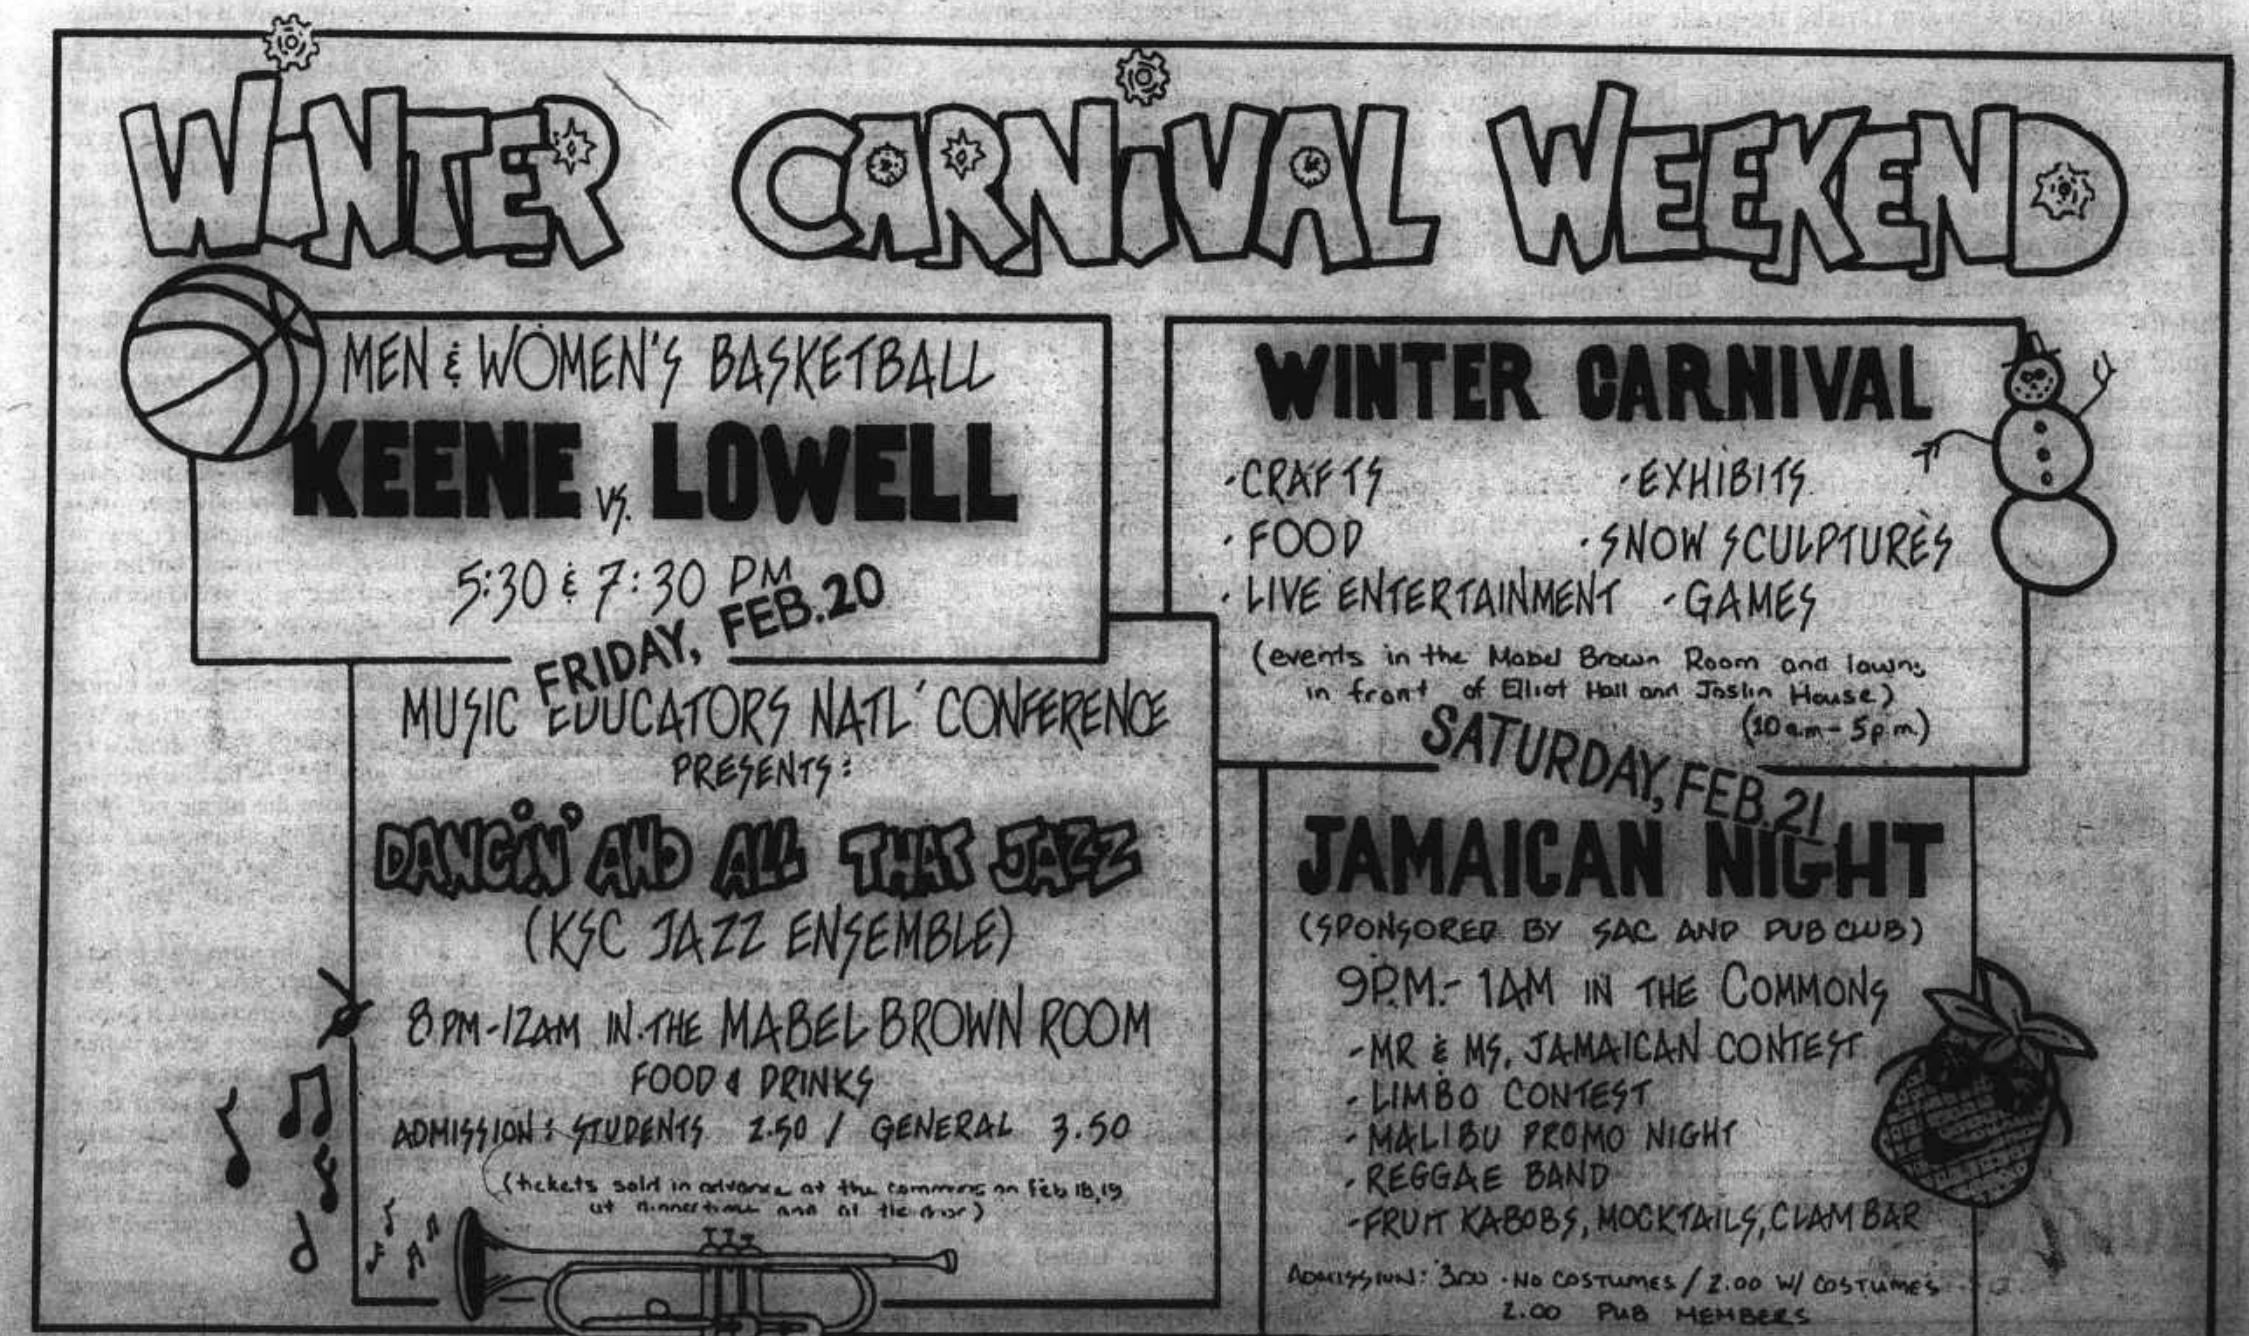 WINTER CARNIVAL WEEKEND
MEN & WOMEN'S BASKETBALL
KEENE VS. LOWELL
5:30 & 7:30 PM
FRIDAY, FEB. 20
MUSIC EDUCATORS NATL' CONFERENCE
PRESENTS:
DANCIN' AND ALL THAT JAZZ
(KSC JAZZ ENSEMBLE)
8 PM-12AM IN THE MABEL BROWN ROOM
FOOD & DRINKS
ADMISSION: STUDENTS 2.50 / GENERAL 3.50
(tickets sold in advance at the commons on Feb 18,19
at dinnertime and at the door)
WINTER CARNIVAL
· CRAFTS · EXHIBITS
· FOOD · SNOW SCULPTURES
· LIVE ENTERTAINMENT · GAMES
(events in the Mabel Brown Room and lawns
in front of Elliot Hall and Joslin House)
(10 a.m - 5 p.m.)
SATURDAY, FEB. 21
JAMAICAN NIGHT
(SPONSORED BY SAC AND PUB CLUB)
9P.M.- 1AM IN THE COMMONS
- MR & MS, JAMAICAN CONTEST
- LIMBO CONTEST
- MALIBU PROMO NIGHT
- REGGAE BAND
- FRUIT KABOBS, MOCKTAILS, CLAM BAR
ADMISSION: 3.00 - NO COSTUMES / 2.00 W/ COSTUMES
2.00 PUB MEMBERS